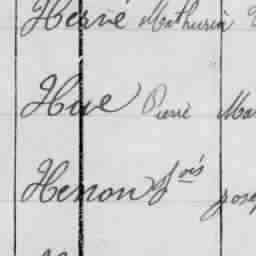 Hervé Mathurin
Hue Pierre Ma
Henon fois Jose